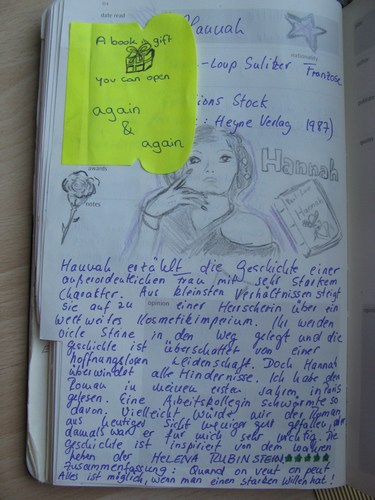 date read
Hannah
A book is gift
you can open
again
&
again
-Loup Sulitzer
Franzose
ions Stock
: Heyne Verlag 1987)
awards
notes
Hannah
Hannah
Hannah erzählt die Geschichte einer
außerordentlichen Frau mit sehr starkem
Charakter. Aus kleinsten Verhältnissen steigt
sie auf zu einer Herrscherin über ein
opinion
weltweites Kosmetikimperium. Ihr werden
viele Steine in den Weg gelegt und die
Geschichte ist überschattet von einer
hoffnungslosen Leidenschaft. Doch Hannah
überwindet alle Hindernisse. Ich habe den
Roman in meinen ersten Jahren in Paris
gelesen. Eine Arbeitskollegin schwärmte so
davon. Vielleicht würde mir der Roman
aus heutiger Sicht weniger gut gefallen, aber
damals war er für mich sehr wichtig. Die
Geschichte ist inspiriert von dem wahren
Leben der HELENA RUBINSTEIN
Zusammenfassung: Quand on veut on peut
Alles ist möglich, wenn man einen starken Willen hat!